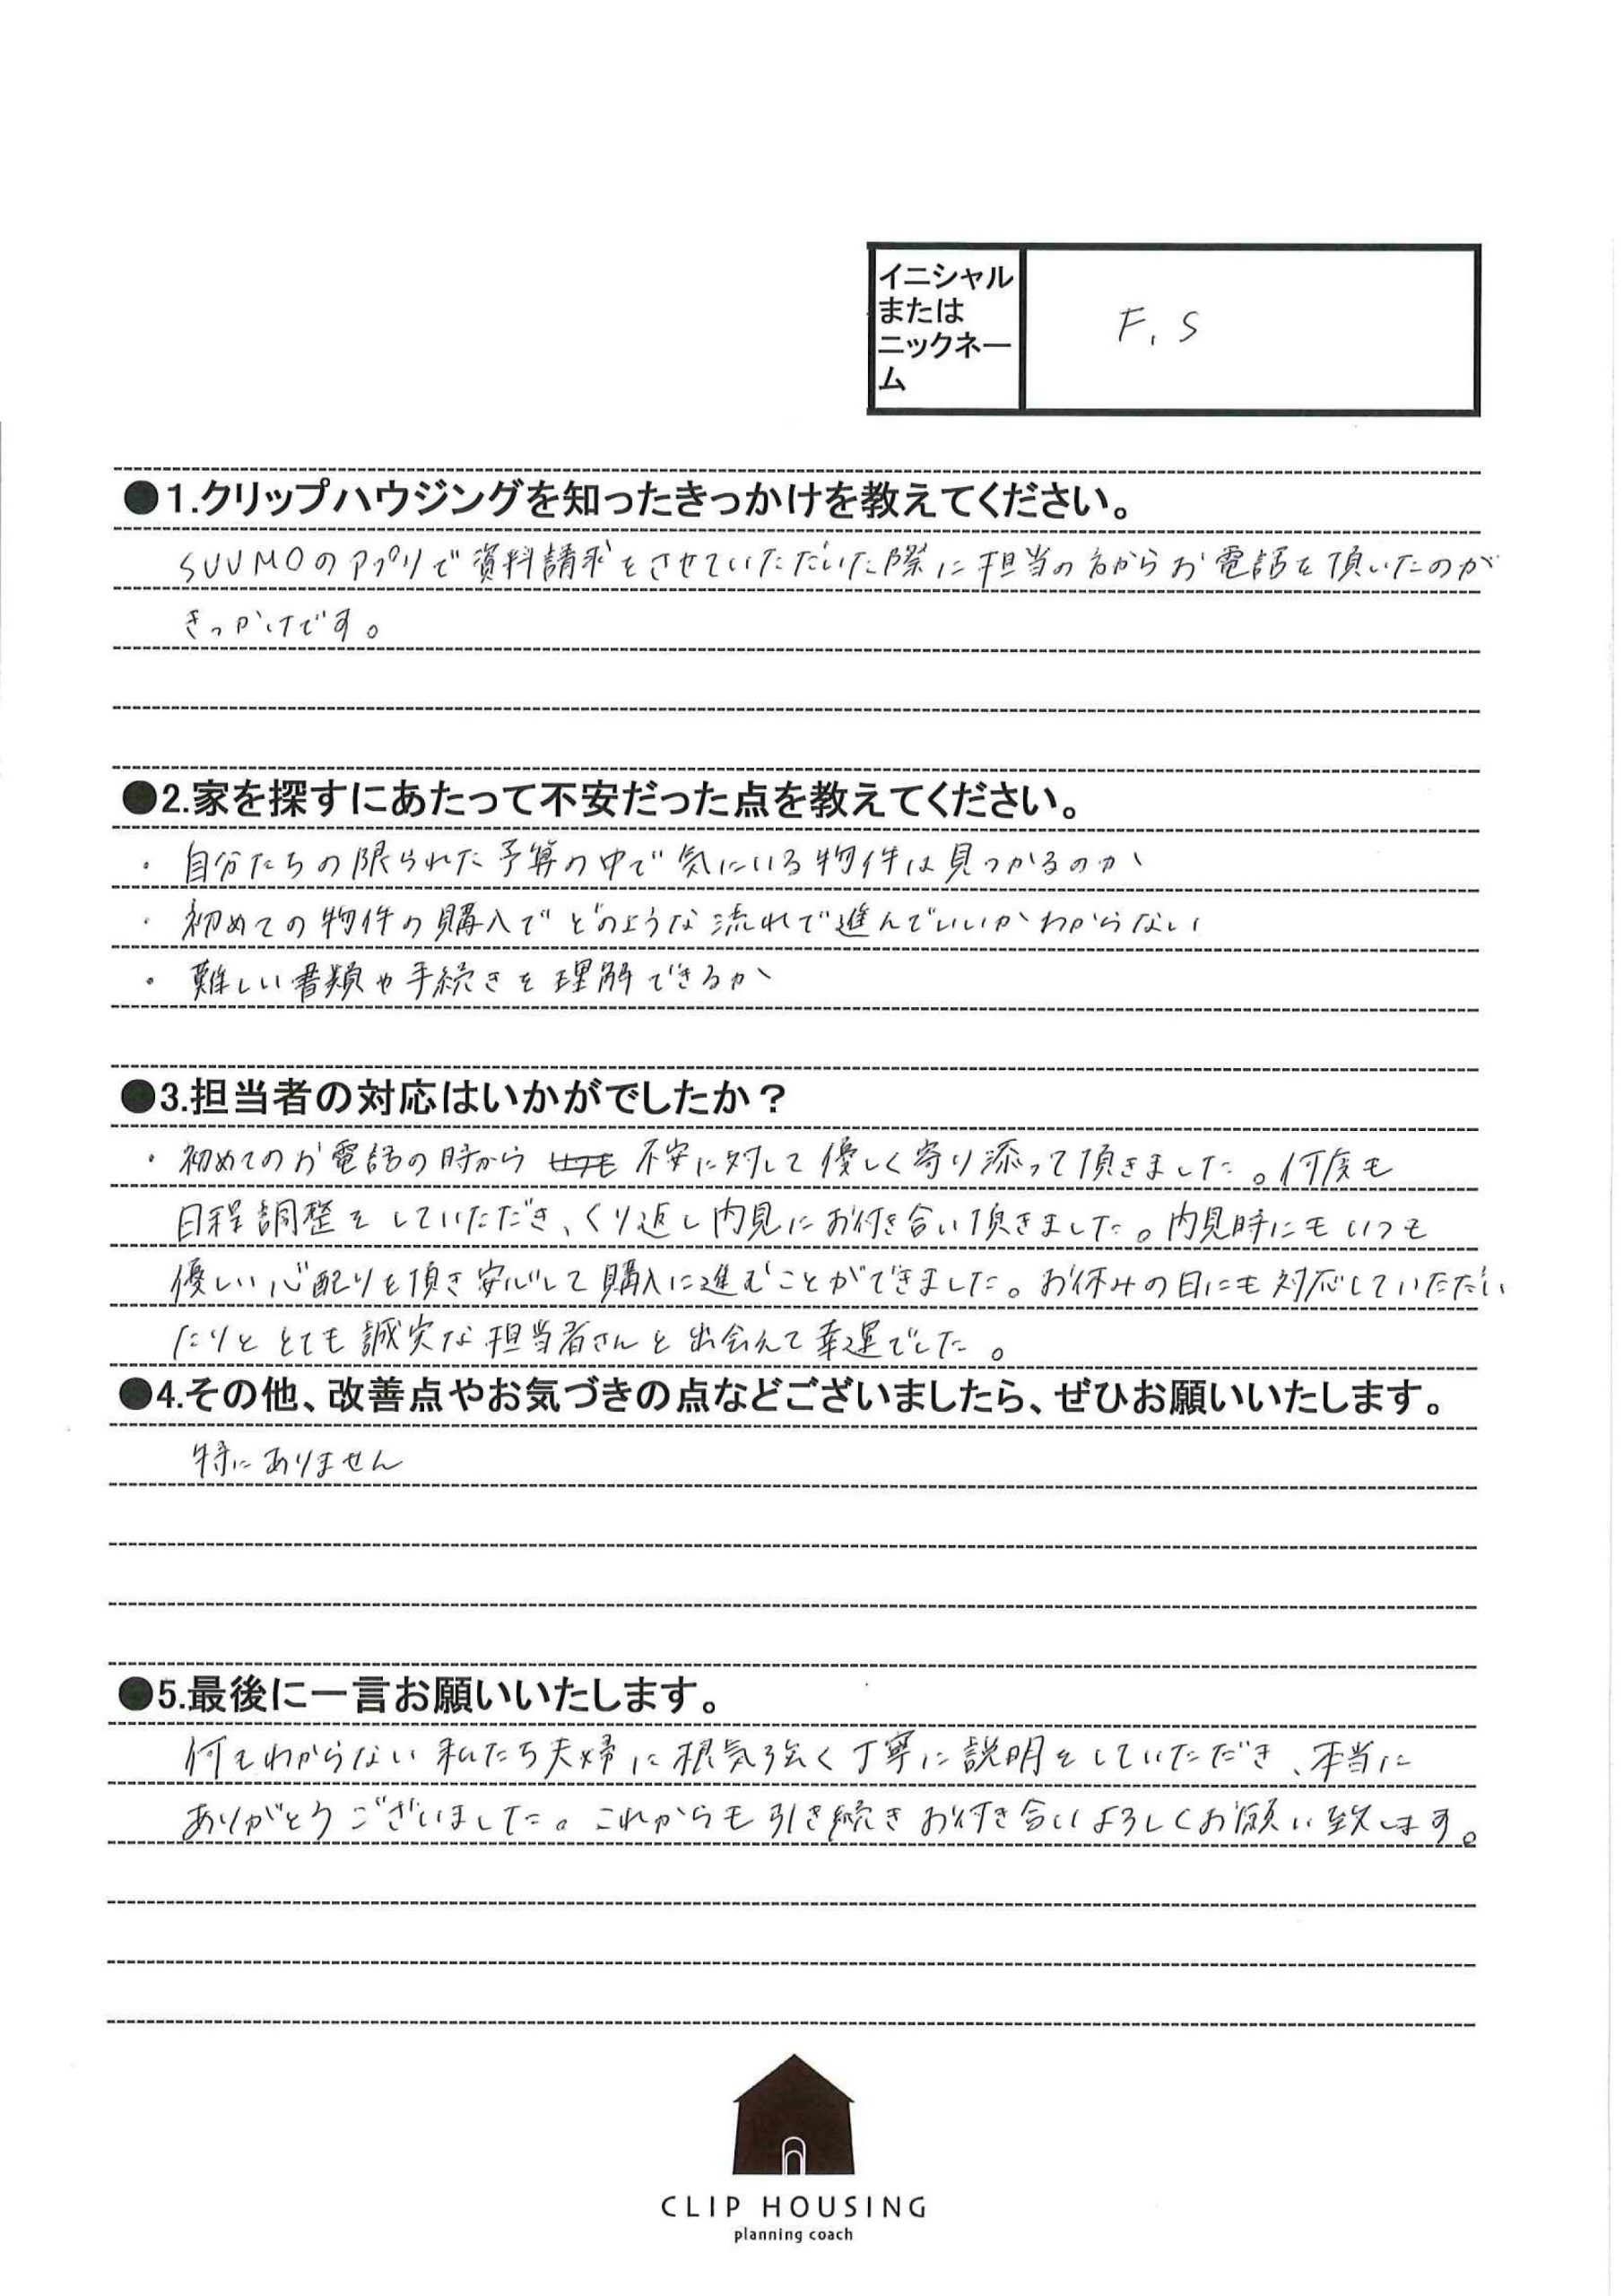 イニシャル
または
ニックネー
ム
F.S
●1.クリップハウジングを知ったきっかけを教えてください。
SUUMOのアプリで資料請求をさせていただいた際に担当の方からお電話を頂いたのが
きっかけです。
●2.家を探すにあたって不安だった点を教えてください。
・自分たちの限られた予算の中で気にいる物件は見つかるのか
・初めての物件の購入でどのような流れで進んでいいかわからない
・難しい書類や手続きを理解できるか
●3.担当者の対応はいかがでしたか？
・初めてのお電話の時から 不安に対して優しく寄り添って頂きました。何度も
日程調整をしていただき、くり返し内見にお付き合い頂きました。内見時にもいつも
優しい心配りを頂き安心して購入に進むことができました。お休みの日にも対応していただい
たりととても誠実な担当者さんと出会えて幸運でした。
●4.その他、改善点やお気づきの点などございましたら、ぜひお願いいたします。
特にありません
●5.最後に一言お願いいたします。
何もわからない私たち夫婦に根気強く丁寧に説明をしていただき、本当に
ありがとうございました。これからも引き続きお付き合いよろしくお願い致します。
CLIP HOUSING
planning coach